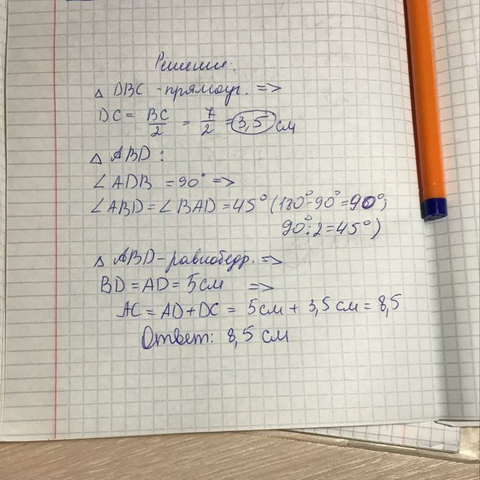 Решение.
△ DBC - прямоуг. =>
DC = BC/2 = 7/2 = 3,5 см
△ ABD :
∠ADB = 90° =>
∠ABD = ∠BAD = 45° (180°-90°=90°;
90°:2=45°)
△ ABD - равнобедр. =>
BD = AD = 5 см =>
AC = AD + DC = 5 см + 3,5 см = 8,5
Ответ: 8,5 см